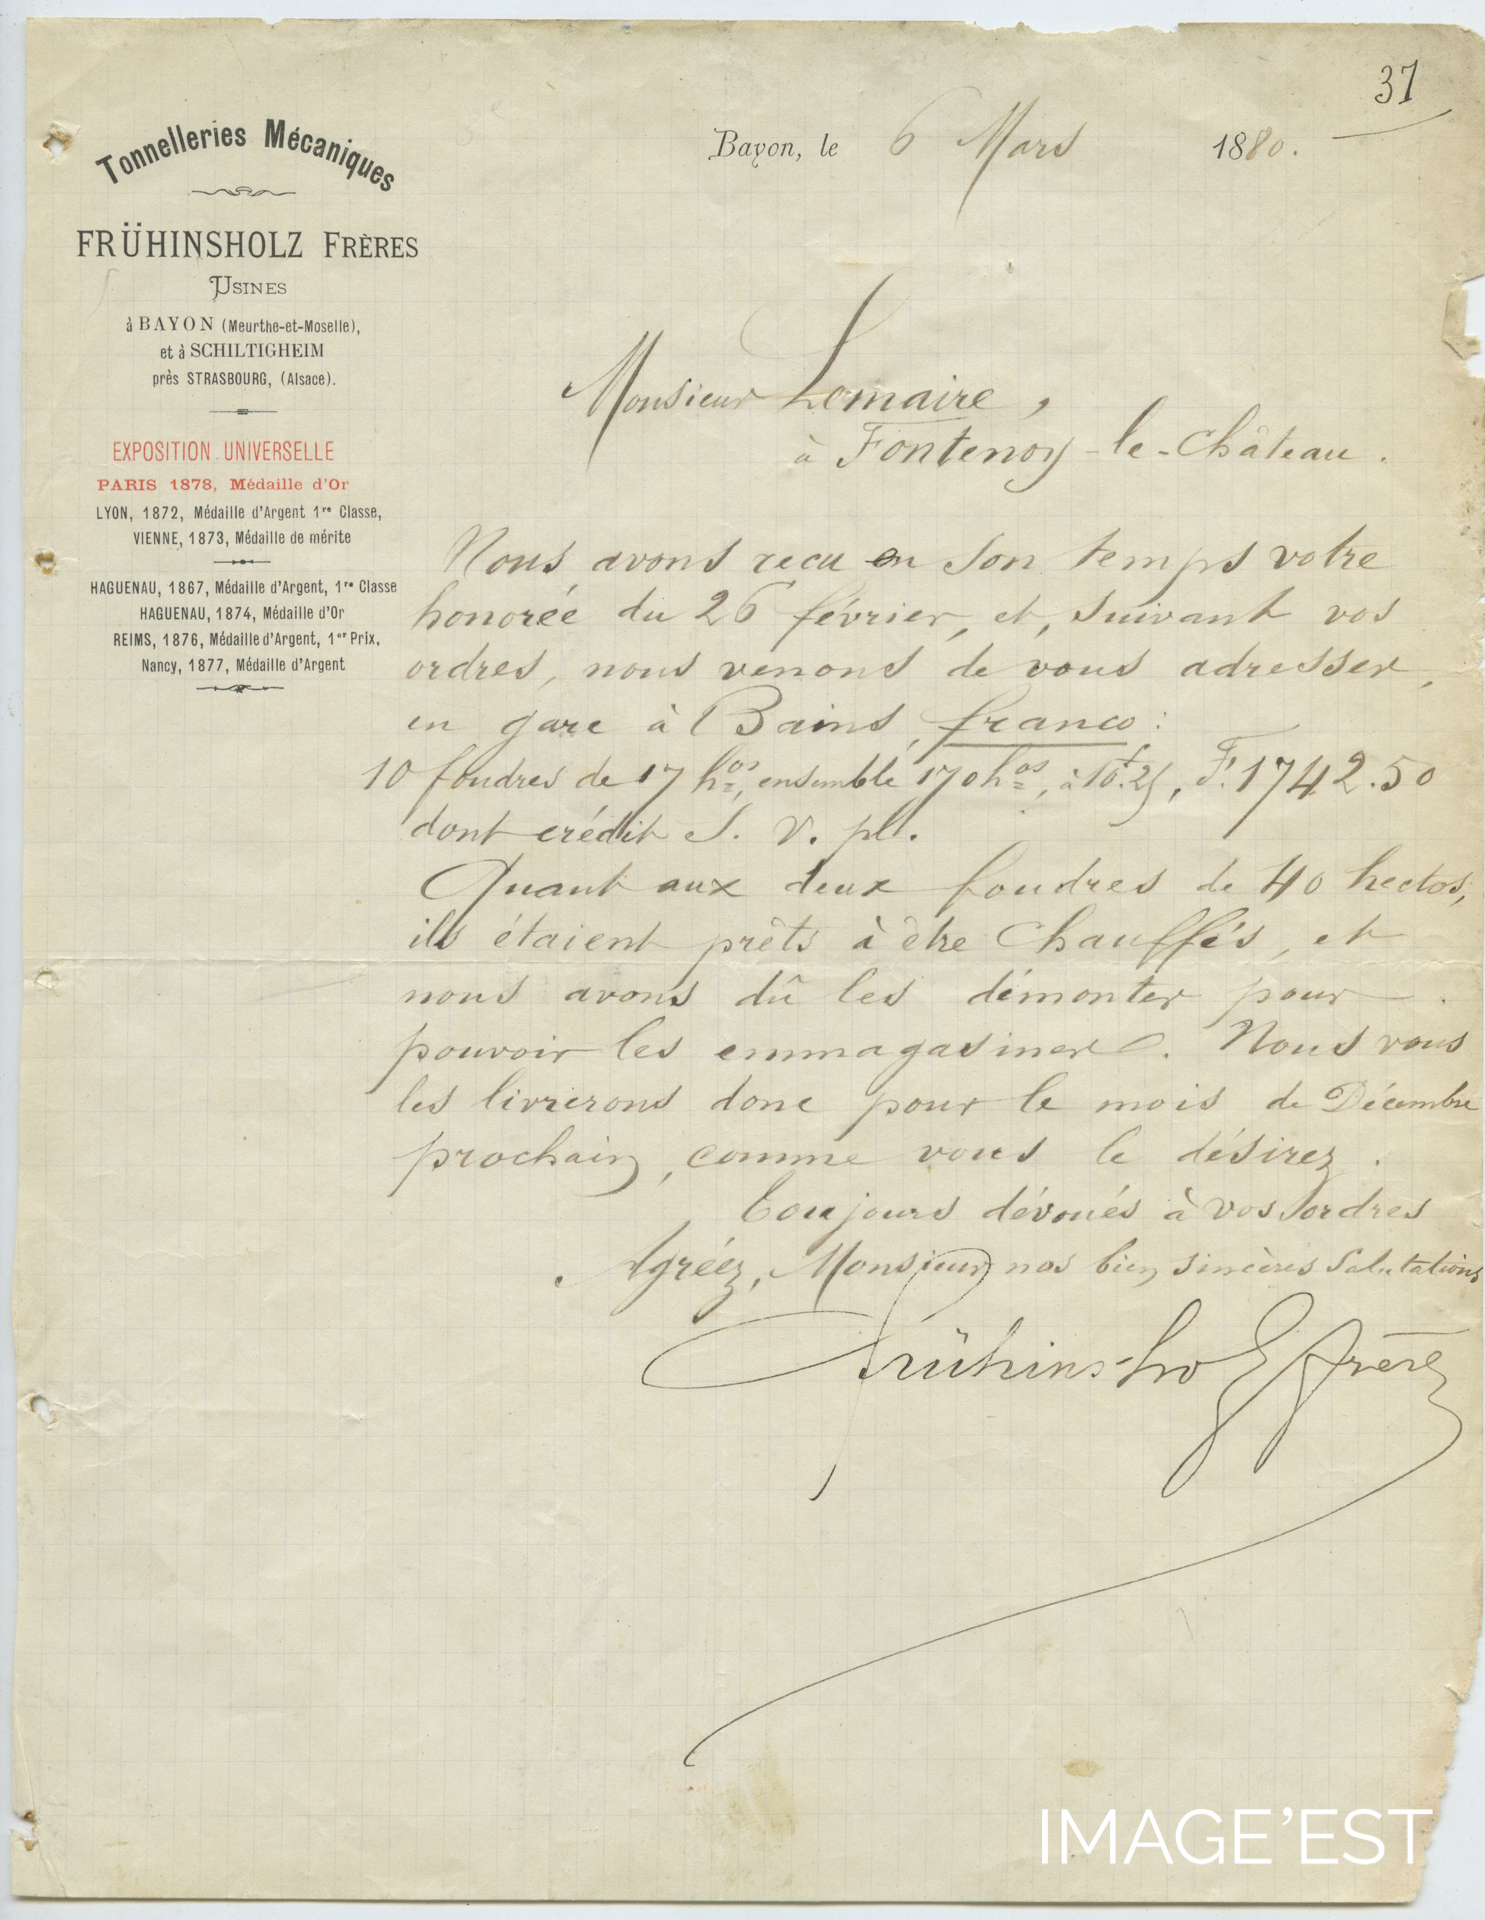 37
Tonnelleries Mécaniques
FRÜHINSHOLZ FRÈRES
USINES
à BAYON (Meurthe-et-Moselle),
et à SCHILTIGHEIM
près STRASBOURG, (Alsace).
EXPOSITION UNIVERSELLE
PARIS 1878, Médaille d'Or
LYON, 1872, Médaille d'Argent 1re Classe,
VIENNE, 1873, Médaille de mérite
HAGUENAU, 1867, Médaille d'Argent, 1re Classe
HAGUENAU, 1874, Médaille d'Or
REIMS, 1876, Médaille d'Argent, 1er Prix,
Nancy, 1877, Médaille d'Argent
Bayon, le 6 Mars 1880.
Monsieur Lemaire,
à Fontenoy-le-Château.
Nous avons recu en son temps votre
honorée du 26 février, et, suivant vos
ordres, nous venons de vous adresser,
en gare à Bains, franco:
10 foudres de 17 hos, ensemble 170 hos, à 10f.25, F. 1742.50
dont crédit S. V. pl.
Quant aux deux foudres de 40 hectos,
ils étaient prêts à être chauffés, et
nous avons dû les démonter pour
pouvoir les emmagasiner. Nous vous
les livrerons donc pour le mois de Décembre
prochain, comme vous le désirez.
Toujours dévoués à vos ordres
Agréez, Monsieur nos bien sincères salutations
Frühinsholz frères
IMAGE'EST